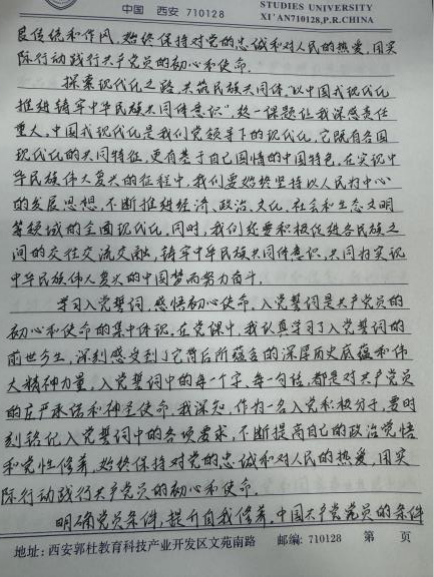 中国 西安 710128
STUDIES UNIVERSITY
XI'AN710128,P.R.CHINA
良传统和作风,始终保持对党的忠诚和对人民的热爱,用实
际行动践行共产党员的初心和使命.
探索现代化之路,共筑民族共同体."以中国式现代化
推进铸牢中华民族共同体意识",这一课题让我深感责任
重大,中国式现代化是我们党领导下的现代化,它既有各国
现代化的共同特征,更有基于自己国情的中国特色.在实现中
华民族伟大复兴的征程中,我们要始终坚持以人民为中心
的发展思想,不断推进经济、政治、文化、社会和生态文明
等领域的全面现代化.同时,我们还要积极促进各民族之
间的交往交流交融,铸牢中华民族共同体意识,共同为实现
中华民族伟大复兴的中国梦而努力奋斗.
学习入党誓词,感悟初心使命.入党誓词是共产党员的
初心和使命的集中体现.在党课中,我认真学习了入党誓词的
前世今生,深刻感受到了它背后所蕴含的深厚历史底蕴和伟
大精神力量.入党誓词中的每一个字、每一句话,都是对共产党员
的庄严承诺和神圣使命.我深知,作为一名入党积极分子,要时
刻铭记入党誓词中的各项要求,不断提高自己的政治觉悟
和党性修养,始终保持对党的忠诚和对人民的热爱,用实
际行动践行共产党员的初心和使命.
明确党员条件,提升自我修养.中国共产党党员的条件
地址:西安郭杜教育科技产业开发区文苑南路 邮编:710128 第 页